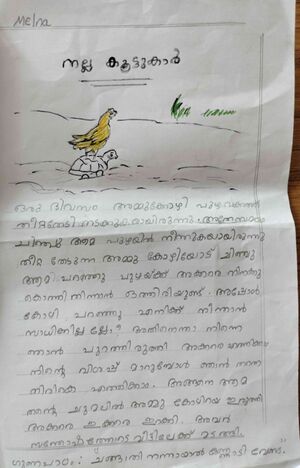 Melna
നല്ല കൂട്ടുകാർ
ഒരു ദിവസം അമ്മുക്കോഴി പുഴവക്കത്ത്
തീറ്റതേടി നടക്കുകയായിരുന്നു. അന്നേരം
ചിഞ്ചു ആമ പുഴയിൽ നീന്തുകയായിരുന്നു
തീറ്റ തേടുന്ന അമ്മു കോഴിയോട് ചിഞ്ചു
ആമ പറഞ്ഞു പുഴയ്ക്ക് അക്കരെ നിനക്കു
കൊത്തി തിന്നാൻ ഒത്തിരിയുണ്ട്. അപ്പോൾ
കോഴി പറഞ്ഞു എനിക്ക് നീന്താൻ
സാധിക്കില്ലല്ലോ? അതിനെന്താ നിന്നെ
ഞാൻ പുറത്തിരുത്തി അക്കരെ
നിന്റെ വിശപ്പ് മാറുമ്പോൾ ഞാൻ നിന്നെ
തിരികെ എത്തിക്കാം. അങ്ങനെ ആമ
തന്റെ ചുമലിൽ അമ്മു കോഴിയെ ഇരുത്തി
അക്കരെ ഇക്കരെ ഇറക്കി. അവർ
സന്തോഷത്തോടെ വീട്ടിലേക്ക് മടങ്ങി.
ഗുണപാഠം: ചങ്ങാതി നന്നായാൽ കണ്ണാടി വേണ്ട.